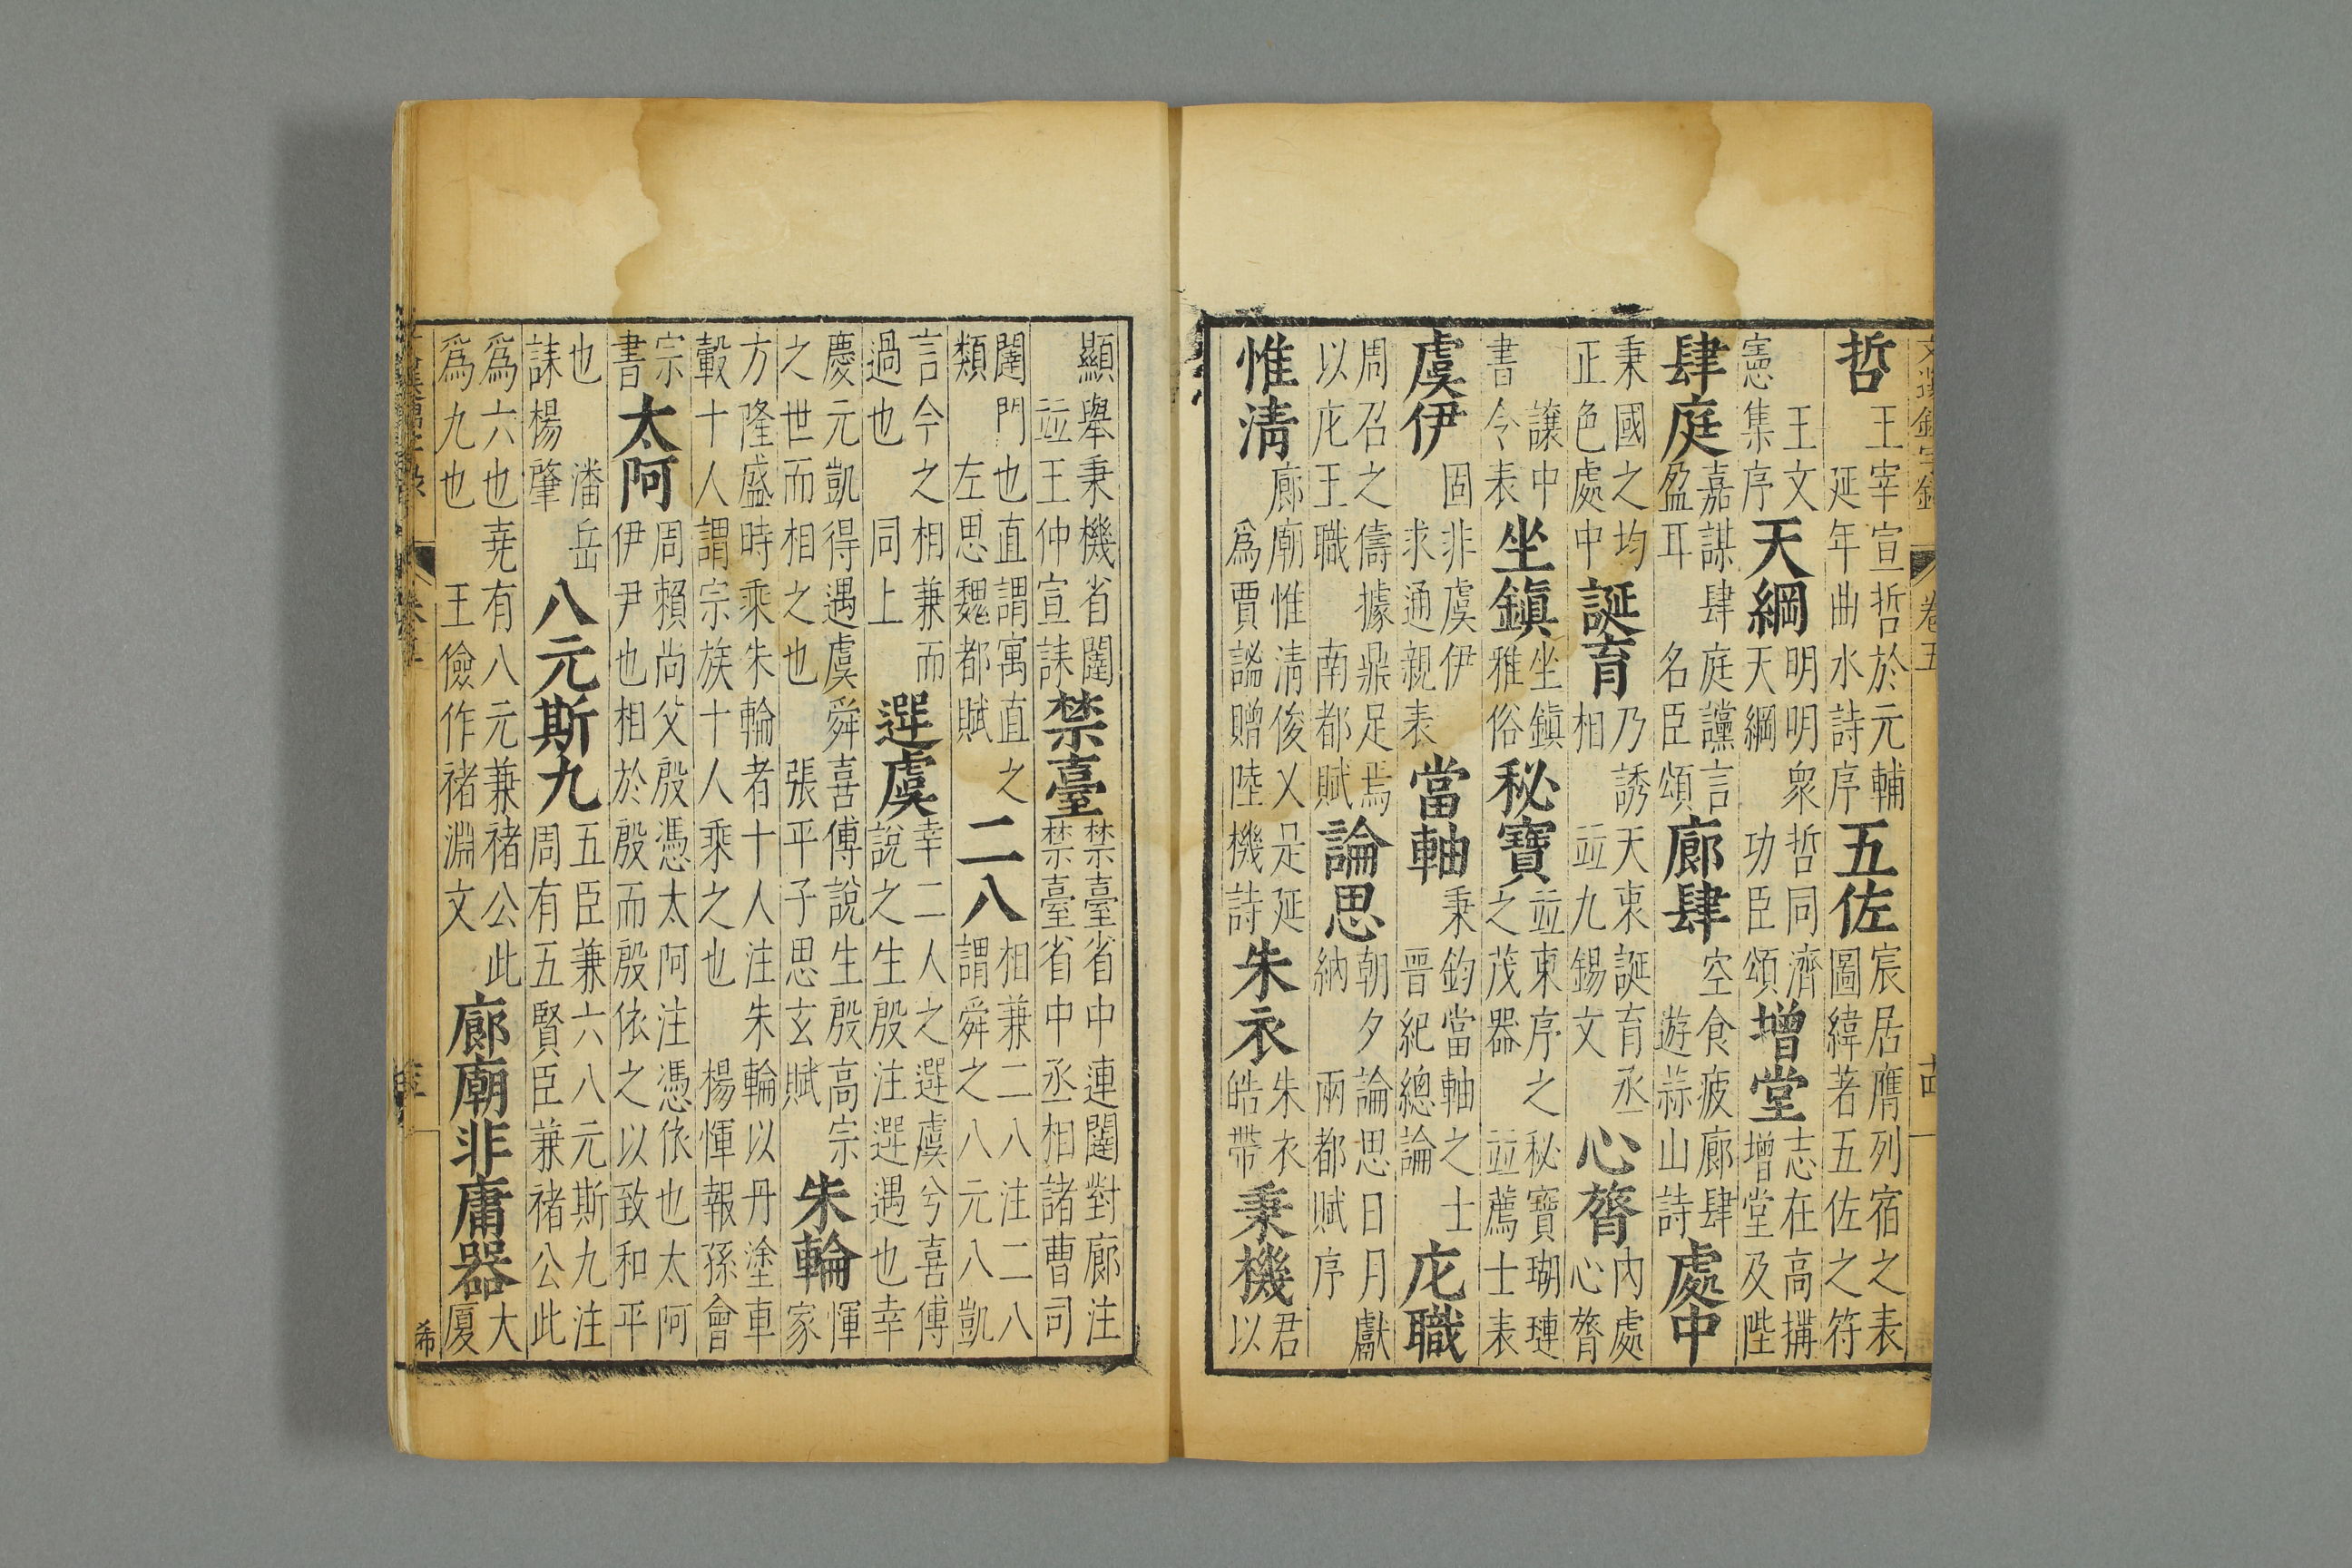 卷五
哲王宰宣哲於元輔延年曲水詩序五佐宸居膺列宿之表圖緯著五佐之符
王文憲集序天綱明明衆哲同濟天綱功臣頌增堂志在高搆增堂及陛
肆庭嘉謀肆庭讜言盈耳名臣頌廊肆空食疲廊肆遊蒜山詩處中
秉國之均正色處中誕育乃誘天衷誕育丞相並九錫文心膂内處心膂
讓中書令表坐鎮坐鎮雅俗秘寶並東序之秘寶瑚璉之茂器並薦士表
虞伊固非虞伊求通親表當軸秉鈞當軸之士晉紀總論庀職
周召之儔據鼎足焉以庀王職南都賦論思朝夕論思日月獻納兩都賦序
惟清廊廟惟清俊乂是延爲賈謐贈陸機詩朱衣朱衣皓帶秉機君以
顯舉秉機省闥並王仲宣誄禁臺禁臺省中連闥對廊注禁臺省中丞相諸曹司
闥門也直謂寓直之類左思魏都賦二八相兼二八注二八謂舜之八元八凱
言今之相兼而過也同上選虞幸二人之選虞兮喜傅說之生殷注選遇也幸
慶元凱得遇虞舜喜傅說生殷高宗之世而相之也張平子思玄賦朱輪惲家
方隆盛時乘朱輪者十人注朱輪以丹塗車轂十人謂宗族十人乘之也楊惲報孫會
宗書太阿周賴尚父殷憑太阿注憑依也太阿伊尹也相於殷而殷依之以致和平
也潘岳誄楊肇八元斯九五臣兼六八元斯九注周有五賢臣兼褚公此
爲六也堯有八元兼褚公此爲九也王儉作褚淵文廊廟非庸器大厦
希